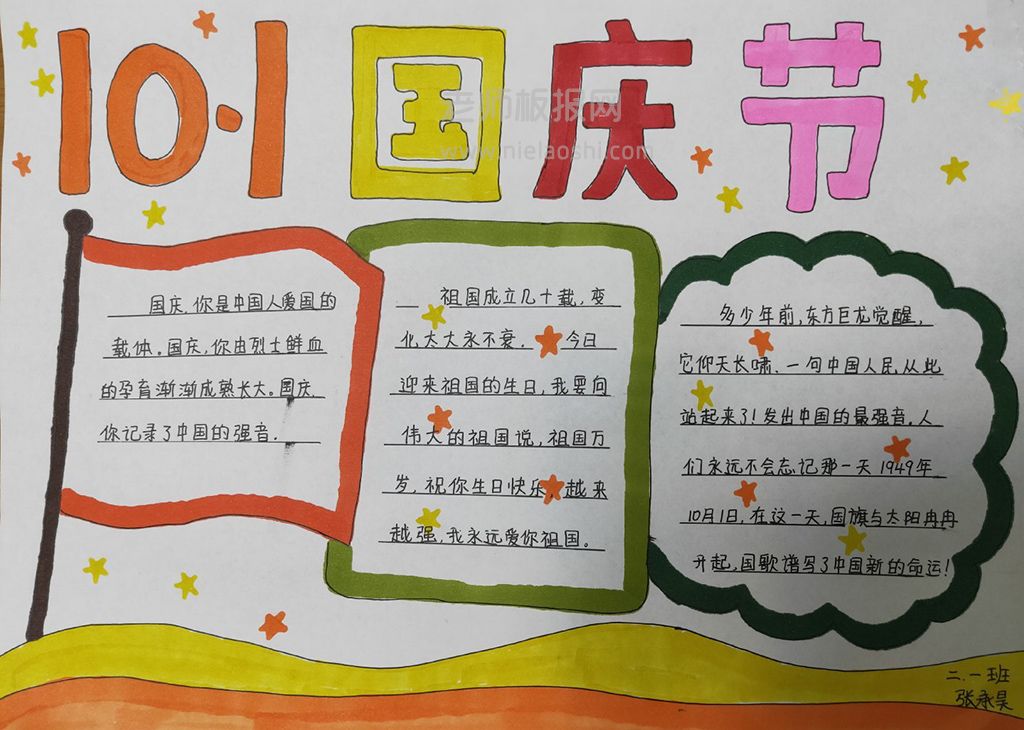 10.1 国庆节
老师板报网
www.nielaoshi.com
国庆,你是中国人爱国的
载体。国庆,你由烈士鲜血
的孕育渐渐成熟长大。国庆,
你记录了中国的强音.
祖国成立几十载,变
化太大永不衰. 今日
迎来祖国的生日,我要向
伟大的祖国说,祖国万
岁,祝你生日快乐,越来
越强,我永远爱你祖国。
多少年前,东方巨龙觉醒,
它仰天长啸.一句中国人民从此
站起来了!发出中国的最强音.人
们永远不会忘记那一天1949年
10月1日,在这一天,国旗与太阳冉冉
升起,国歌谱写了中国新的命运!
二.一班
张承昊